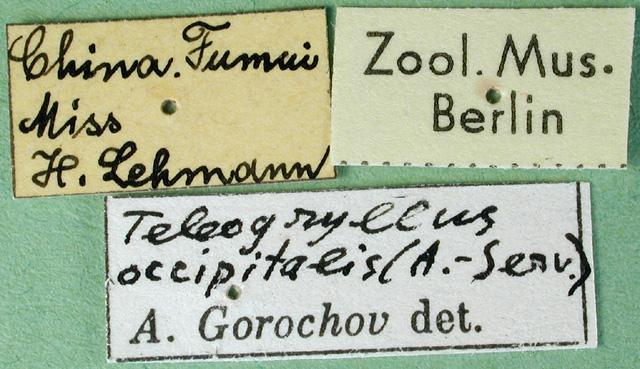 China. Fumui
Miss
H. Lehmann
Zool. Mus.
Berlin
Teleogryllus
occipitalis (A.-Serv.)
A. Gorochov det.